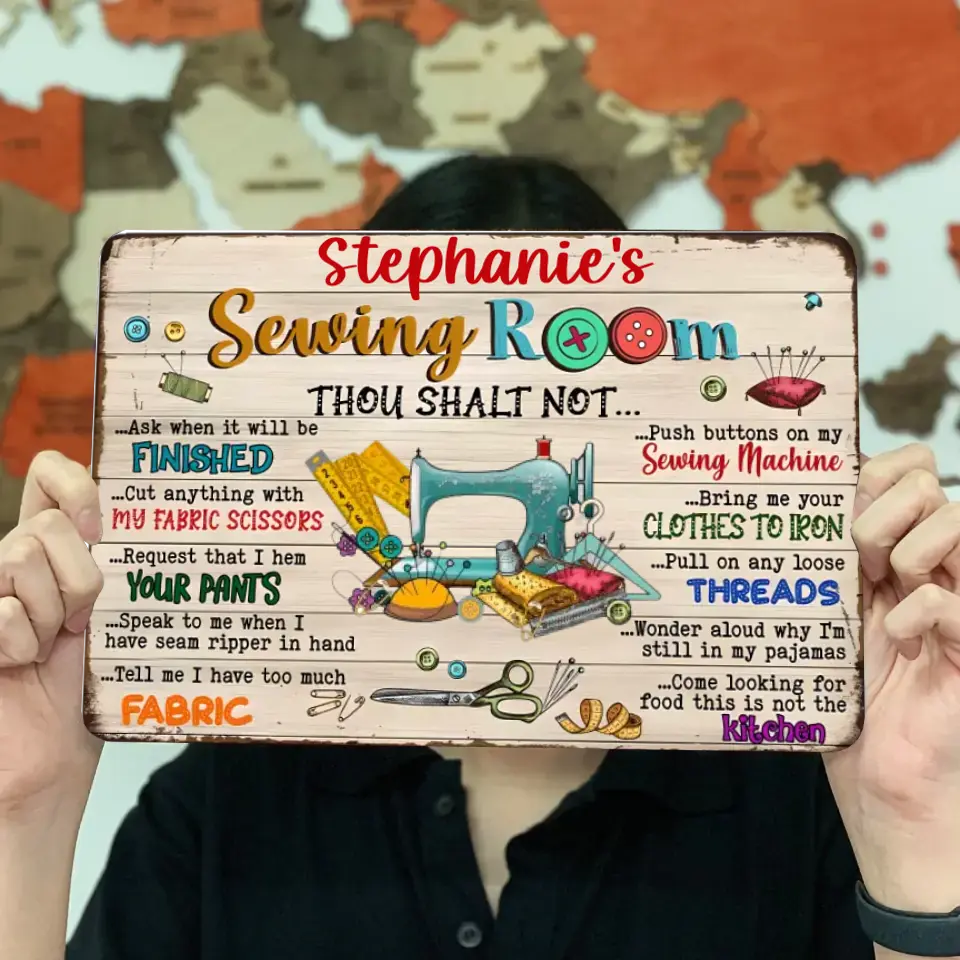 Stephanie's
Sewing Room
THOU SHALT NOT...
...Ask when it will be
FINISHED
...Cut anything with
MY FABRIC SCISSORS
...Request that I hem
YOUR PANTS
...Speak to me when I
have seam ripper in hand
...Tell me I have too much
FABRIC
...Push buttons on my
Sewing Machine
...Bring me your
CLOTHES TO IRON
...Pull on any loose
THREADS
...Wonder aloud why I'm
still in my pajamas
...Come looking for
food this is not the
kitchen
2
3
4
5
6